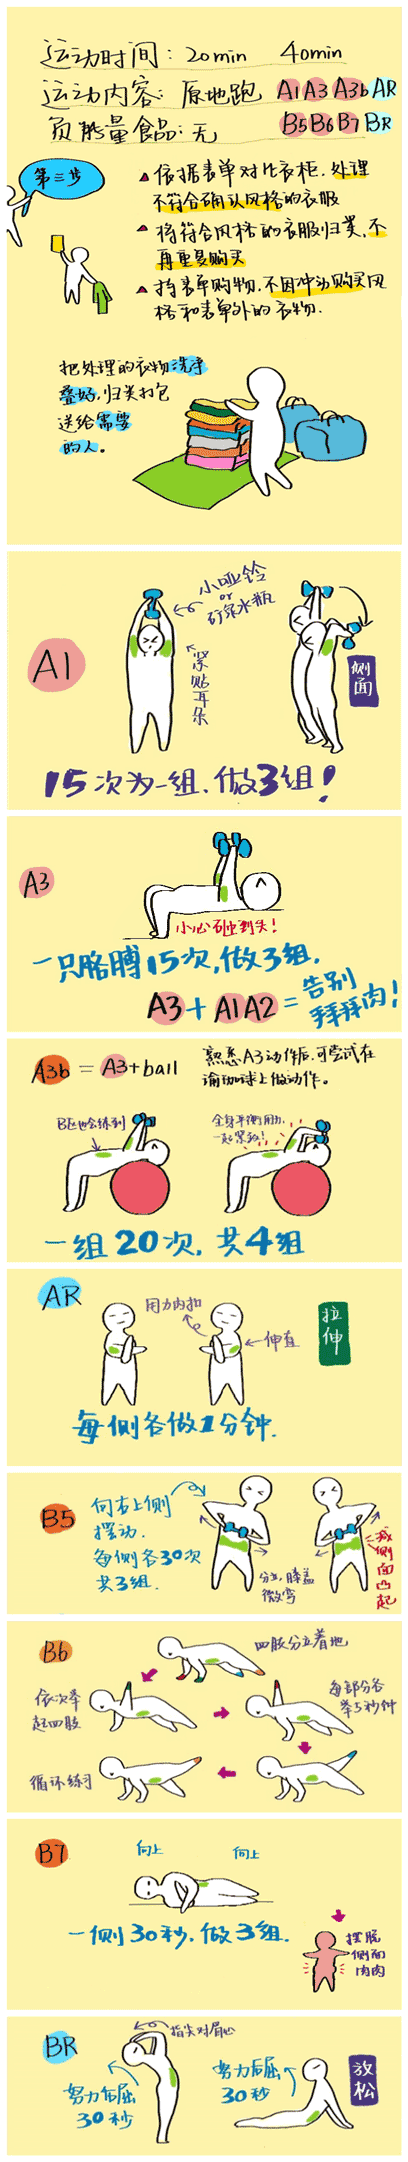 运动时间：20min 40min
运动内容：原地跑 A1 A3 A3b AR
负能量食品：无 B5 B6 B7 BR
第三步
依据表单对比衣柜，处理
不符合确认风格的衣服
将符合风格的衣服归类，不
再重复购买
持表单购物，不因冲动购买风
格和表单外的衣物．
把处理的衣物洗净
叠好，归类打包
送给需要
的人。
A1
小哑铃
or
矿泉水瓶
紧贴耳朵
侧面
15次为一组，做3组！
A3
小心砸到头！
一只胳膊15次，做3组．
A3+A1A2=告别
拜拜肉！
A3b = A3+ball
熟悉A3动作后，可尝试在
瑜伽球上做动作。
B区也会练到
全身平衡用力，
一起紧致！
一组20次，共4组
AR
用力内扣
伸直
拉伸
每侧各做1分钟．
B5
向右上侧
摆动．
每侧各30次
共3组．
分立，膝盖
微弯
减侧面凸起
B6
四肢分立着地
依次举
起四肢
每部分各
举5秒钟
循环练习
B7
向上
向上
一侧30秒，做3组．
摆脱
侧面
肉肉
BR
指尖对眉心
努力后屈
30秒
努力后屈
30秒
放松